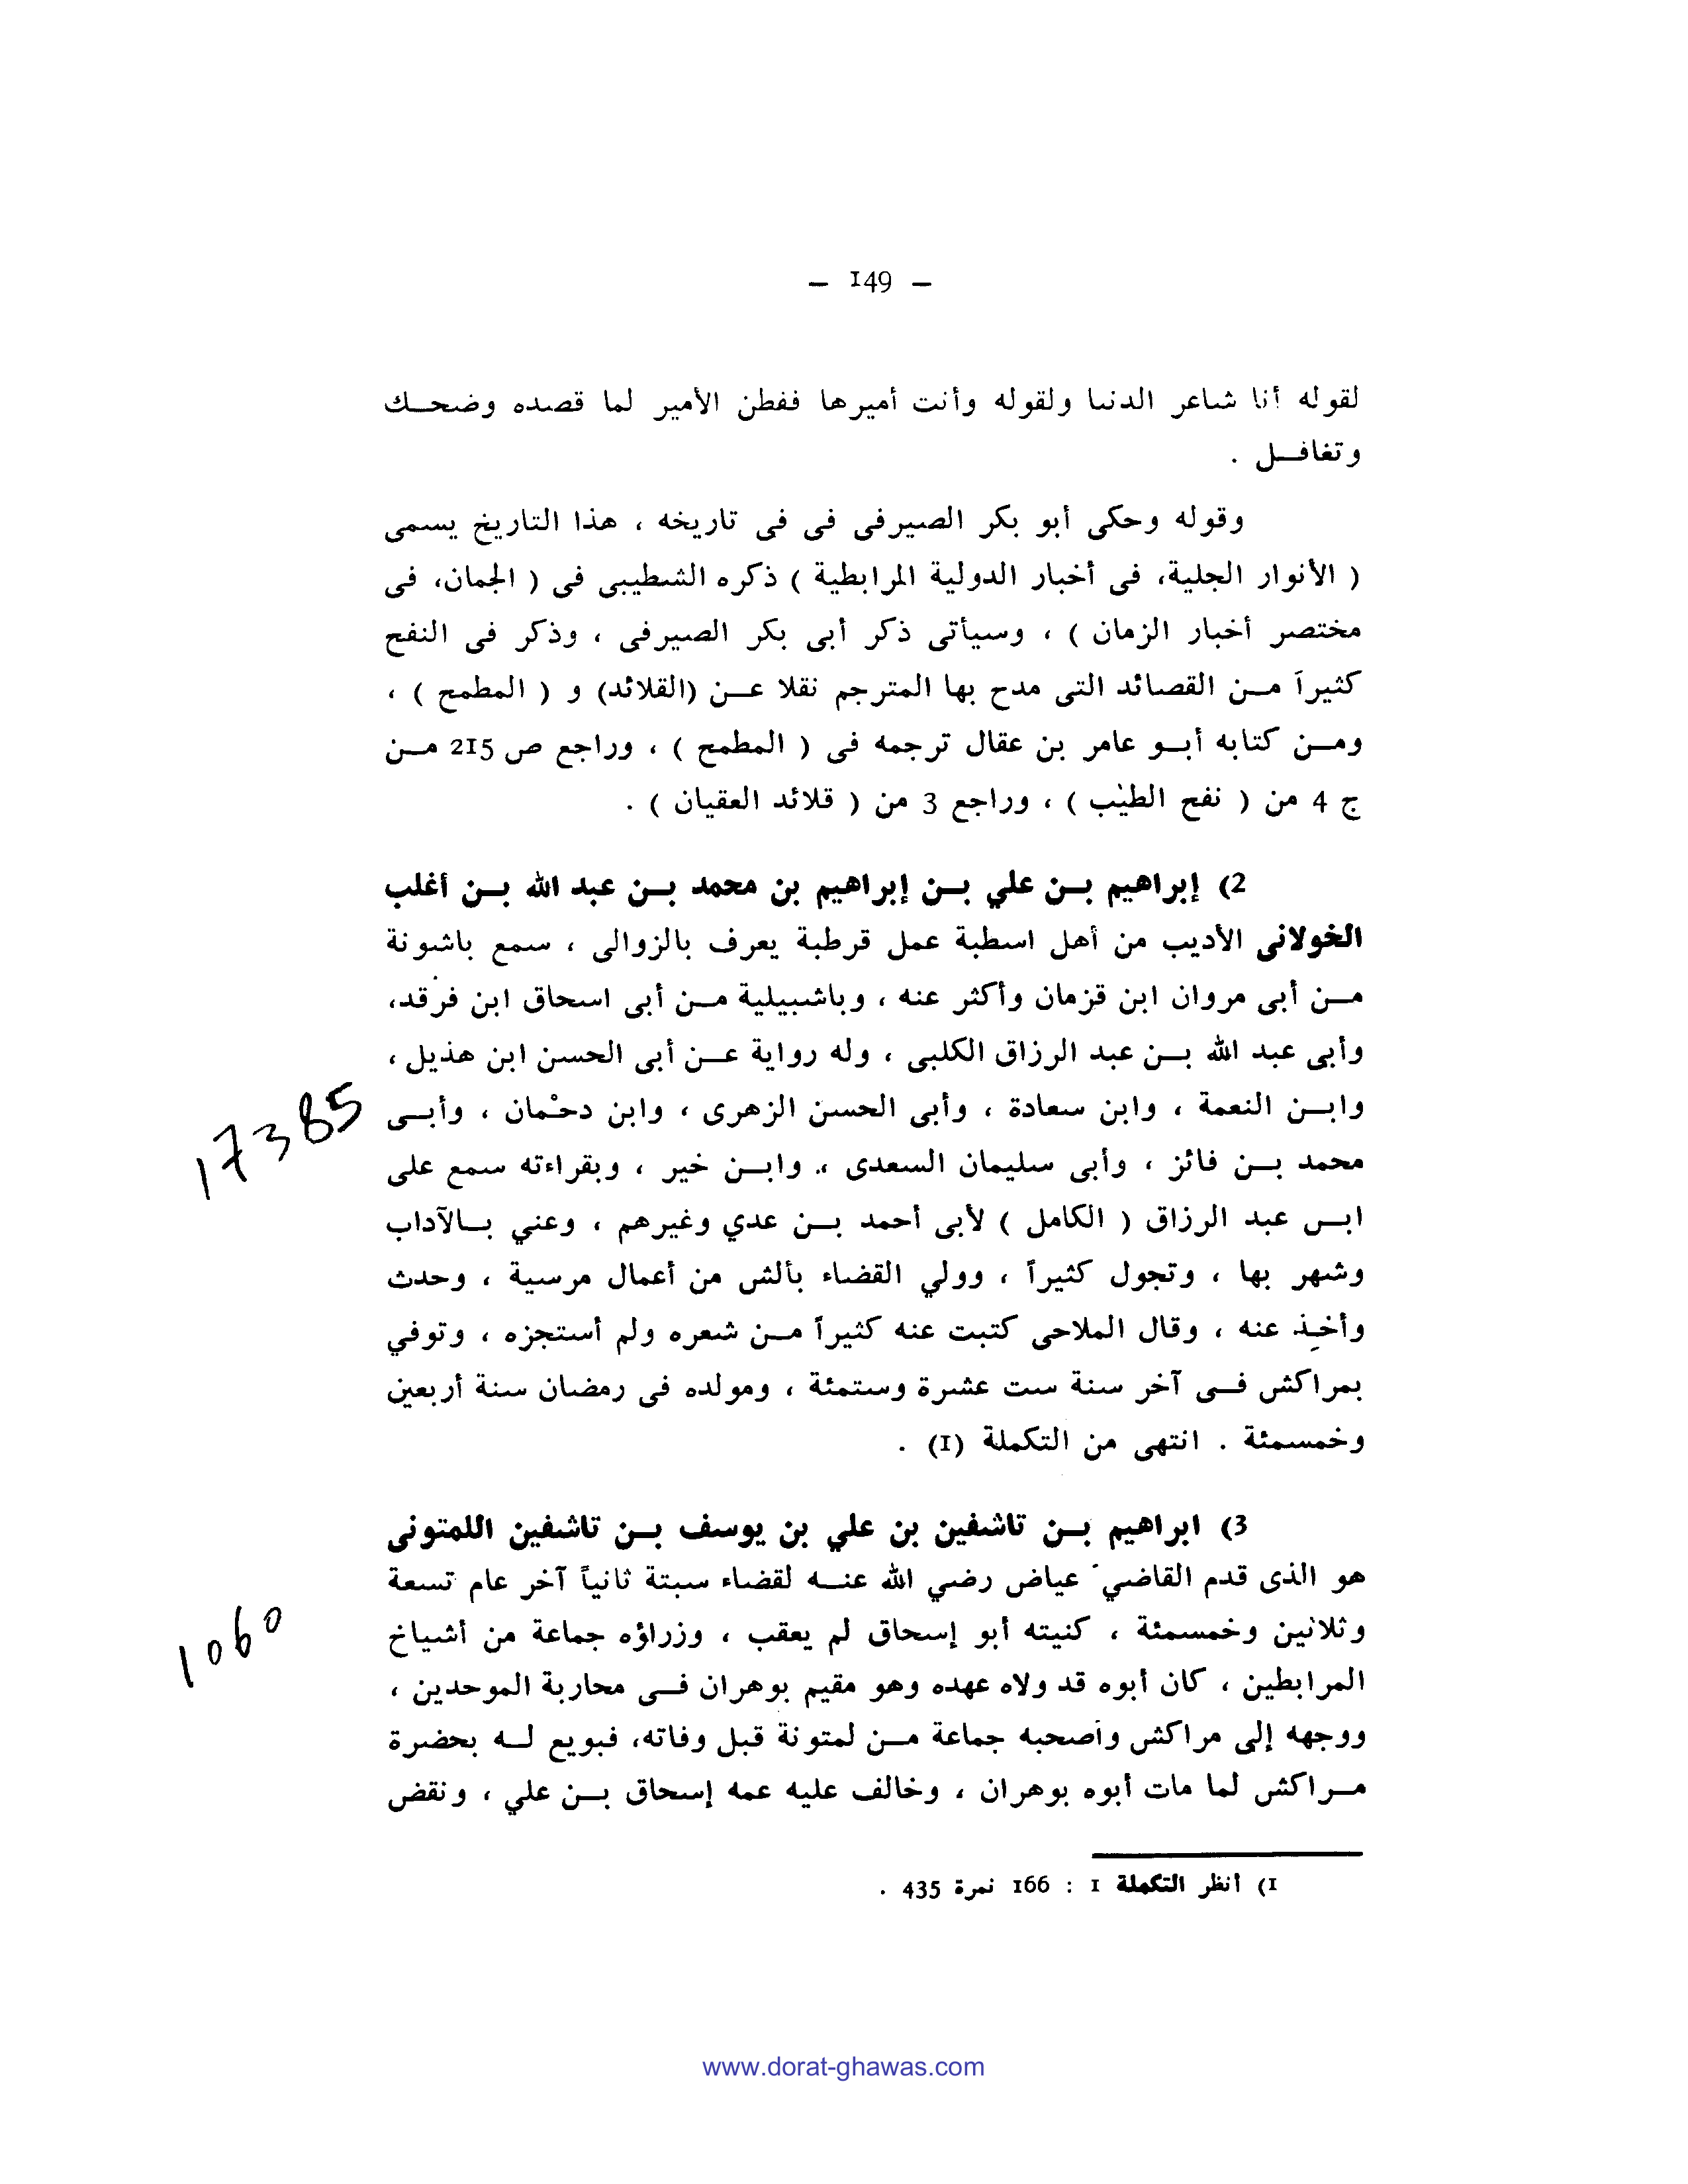 — 149 —
لقوله أنا شاعر الدنيا ولقوله وأنت أميرها ففطن الأمير لما قصده وضحك
وتغافل .
وقوله وحكى أبو بكر الصيرفى فى فى تاريخه ، هذا التاريخ يسمى
( الأنوار الجلية، فى أخبار الدولية المرابطية ) ذكره الشطيبى فى ( الجمان، فى
مختصر أخبار الزمان ) ، وسيأتى ذكر أبى بكر الصيرفى ، وذكر فى النفح
كثيراً من القصائد التى مدح بها المترجم نقلا عن (القلائد) و ( المطمح ) ،
ومن كتابه أبو عامر بن عقال ترجمه فى ( المطمح ) ، وراجع ص 215 من
ج 4 من ( نفح الطيب ) ، وراجع 3 من ( قلائد العقيان ) .
2) إبراهيم بن علي بن إبراهيم بن محمد بن عبد الله بن أغلب
الخولانى الأديب من أهل اسطبة عمل قرطبة يعرف بالزوالى ، سمع باشونة
من أبى مروان ابن قزمان وأكثر عنه ، وباشبيلية من أبى اسحاق ابن فرقد،
وأبى عبد الله بن عبد الرزاق الكلبى ، وله رواية عن أبى الحسن ابن هذيل ،
وابن النعمة ، وابن سعادة ، وأبى الحسن الزهرى ، وابن دحمان ، وأبى
17385
محمد بن فائز ، وأبى سليمان السعدى ، وابن خير ، وبقراءته سمع على
ابس عبد الرزاق ( الكامل ) لأبى أحمد بن عدي وغيرهم ، وعني بالآداب
وشهر بها ، وتجول كثيراً ، وولي القضاء بألش من أعمال مرسية ، وحدث
وأخذ عنه ، وقال الملاحى كتبت عنه كثيراً من شعره ولم أستجزه ، وتوفي
بمراكش فى آخر سنة ست عشرة وستمئة ، ومولده فى رمضان سنة أربعين
وخمسمئة . انتهى من التكملة (1) .
3) ابراهيم بن تاشفين بن علي بن يوسف بن تاشفين اللمتونى
هو الذى قدم القاضي عياض رضي الله عنه لقضاء سبتة ثانياً آخر عام تسعة
وثلاثين وخمسمئة ، كنيته أبو إسحاق لم يعقب ، وزراؤه جماعة من أشياخ
1060
المرابطين ، كان أبوه قد ولاه عهده وهو مقيم بوهران فى محاربة الموحدين ،
ووجهه إلى مراكش وأصحبه جماعة من لمتونة قبل وفاته، فبويع له بحضرة
مراكش لما مات أبوه بوهران ، وخالف عليه عمه إسحاق بن علي ، ونقض
1) أنظر التكملة 1 : 166 نمرة 435 .
www.dorat-ghawas.com